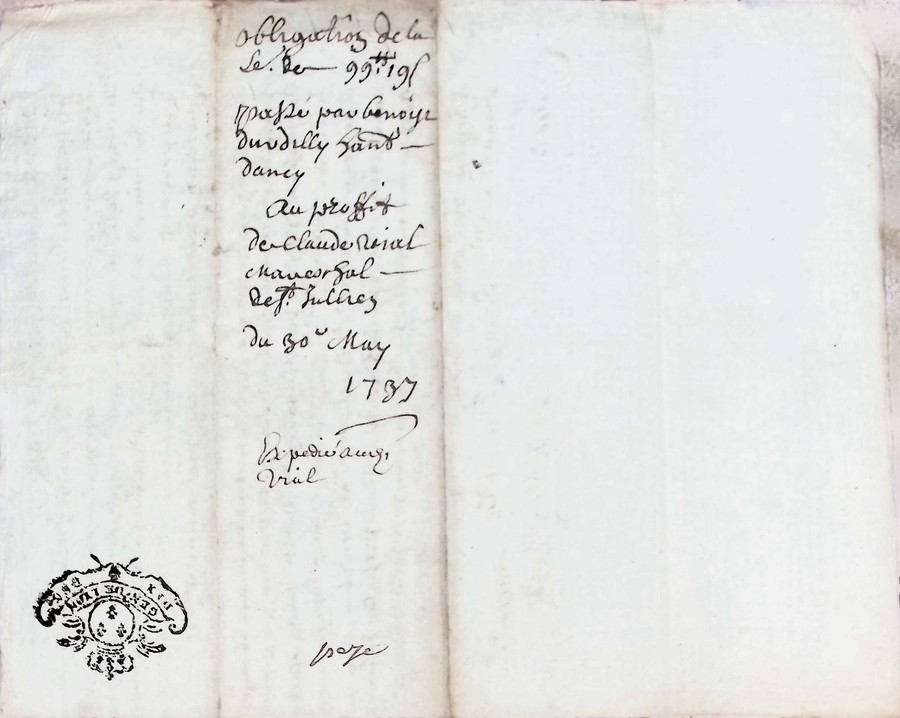 obligation de la
So.e de 99.tt 19 s
passé par benoist
durdilly habt
dancy
Au proffit
de Claude vial
Mareschal
de St. Jullien
du 30e May
1737
Expedié aud.
vial
paye
GEN. DE LYON